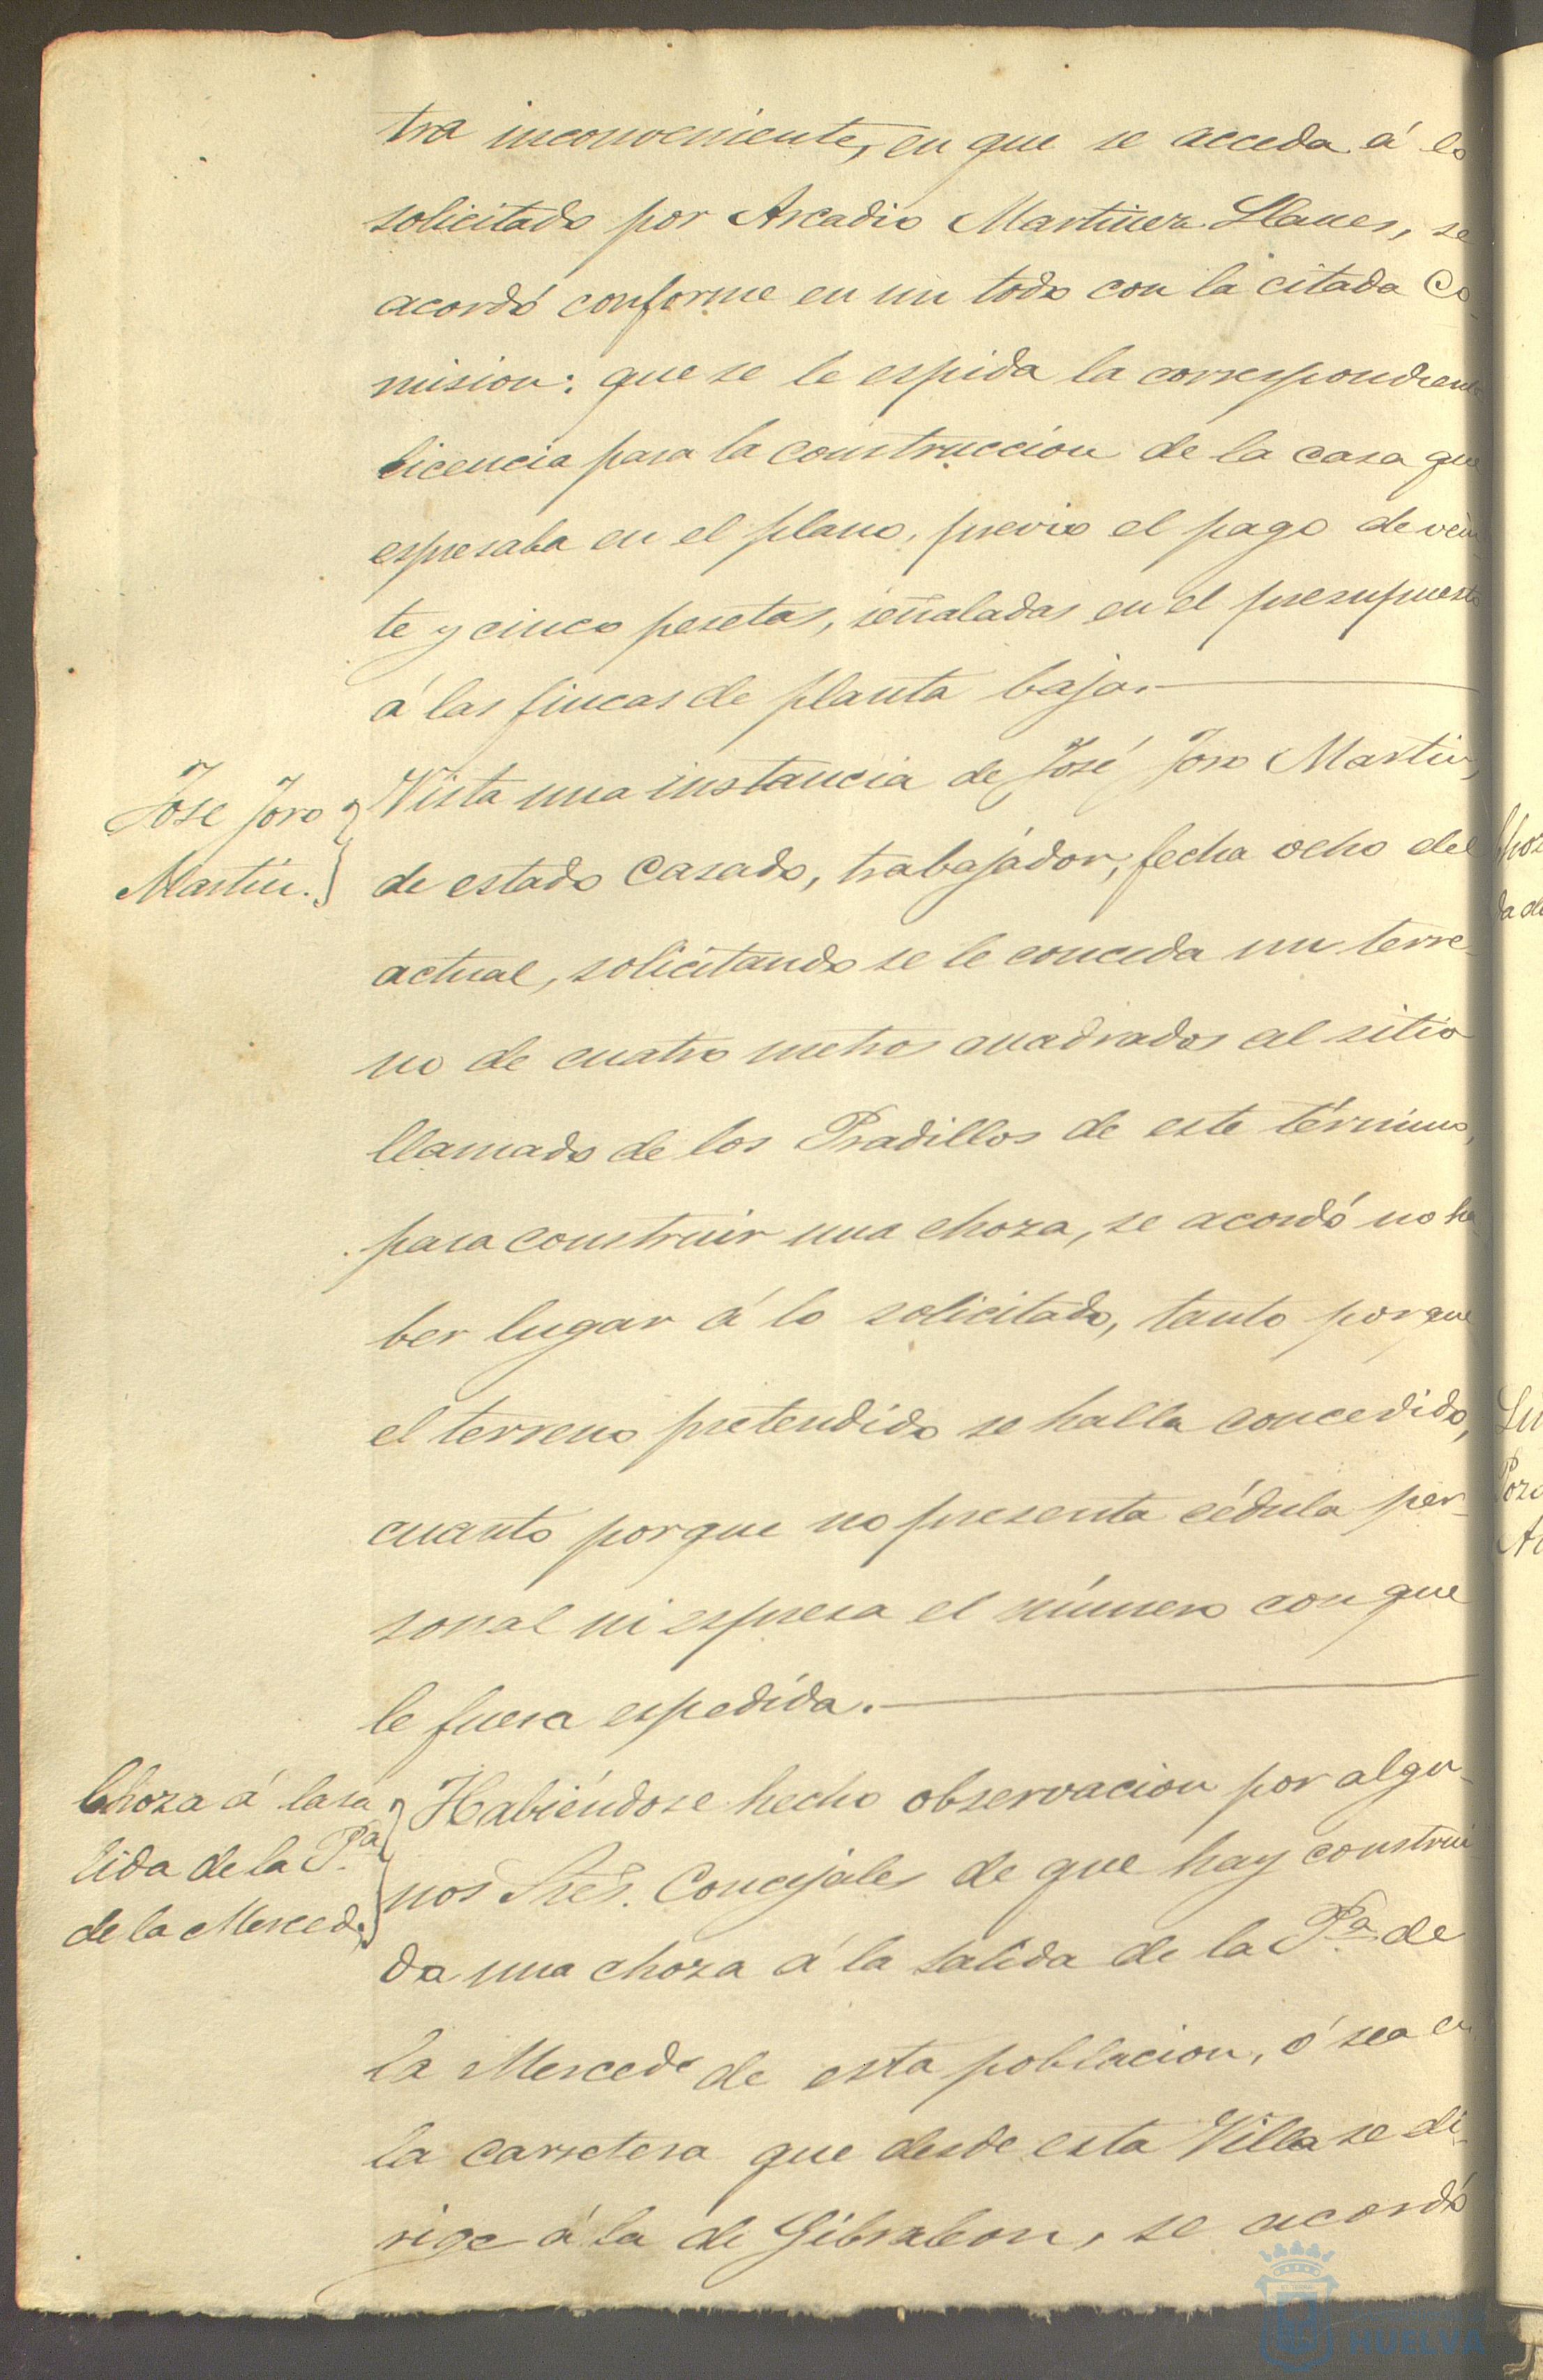 tra inconveniente, en que se acceda á lo
solicitado por Arcadio Martinez Llanes, se
acordó conforme en un todo con la citada Co-
mision: que se le espida la correspondiente
licencia para la construccion de la casa que
espresaba en el plano, previo el pago de vein
te y cinco pesetas, señaladas en el presupuesto
á las fincas de planta baja.
José Joro
Martin.
Vista una instancia de José Joro Martin,
de estado casado, trabajador, fecha ocho del
actual, solicitando se le conceda un terre-
no de cuatro metros cuadrados al sitio
llamado de los Pradillos de este término,
para construir una choza, se acordó no ha
ber lugar á lo solicitado, tanto porque
el terreno pretendido se halla concedido,
cuanto porque no presenta cédula per-
sonal ni espresa el número con que
le fuera espedida.
Choza á la sa
lida de la P.ª
de la Merced.
Habiéndose hecho observacion por algu-
nos Sres. Concejales de que hay construi
da una choza á la salida de la P.ª de
la Merced de esta poblacion, ó sea en
la carretera que desde esta Villa se di-
rige á la de Gibraleon, se acordó
HUELVA